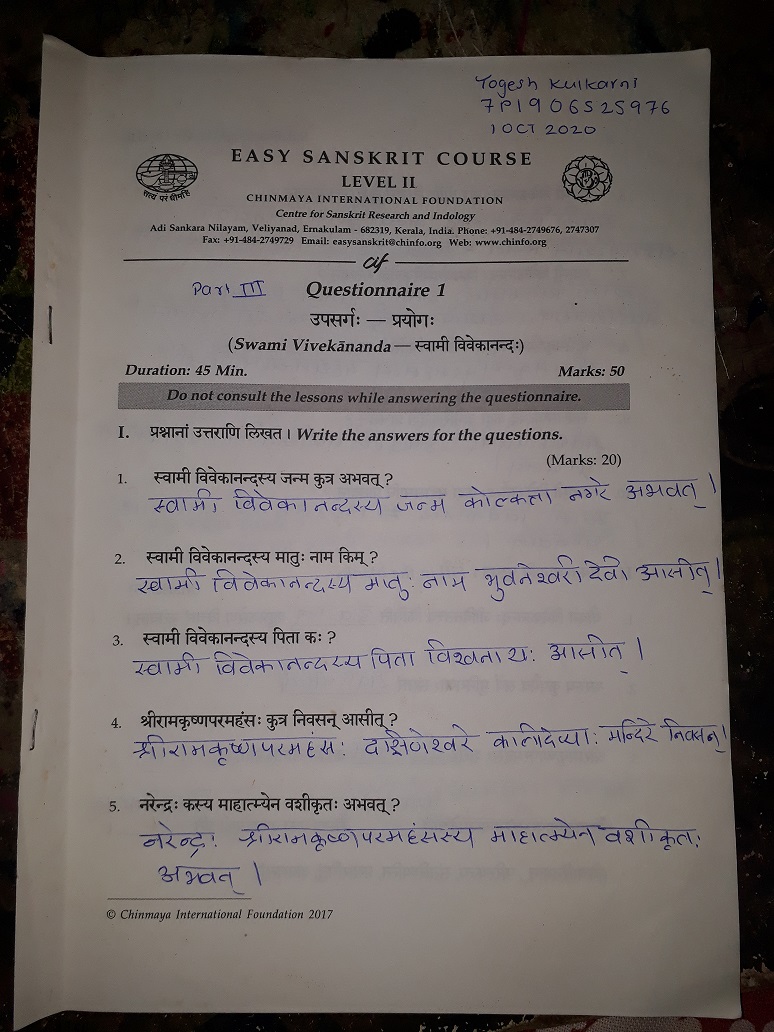 Yogesh Kulkarni
7P1906525976
1 OCT 2020
EASY SANSKRIT COURSE
LEVEL II
CHINMAYA INTERNATIONAL FOUNDATION
Centre for Sanskrit Research and Indology
Adi Sankara Nilayam, Veliyanad, Ernakulam - 682319, Kerala, India. Phone: +91-484-2749676, 2747307
Fax: +91-484-2749729 Email: easysanskrit@chinfo.org Web: www.chinfo.org
Part III Questionnaire 1
उपसर्गः — प्रयोगः
(Swami Vivekānanda — स्वामी विवेकानन्दः)
Duration: 45 Min. Marks: 50
Do not consult the lessons while answering the questionnaire.
I. प्रश्नानां उत्तराणि लिखत । Write the answers for the questions.
(Marks: 20)
1. स्वामी विवेकानन्दस्य जन्म कुत्र अभवत् ?
स्वामी विवेकानन्दस्य जन्म कोल्कत्ता नगरे अभवत् ।
2. स्वामी विवेकानन्दस्य मातुः नाम किम् ?
स्वामी विवेकानन्दस्य मातुः नाम भुवनेश्वरी देवी आसीत् ।
3. स्वामी विवेकानन्दस्य पिता कः ?
स्वामी विवेकानन्दस्य पिता विश्वनाथः आसीत् ।
4. श्रीरामकृष्णपरमहंसः कुत्र निवसन् आसीत् ?
श्रीरामकृष्णपरमहंसः दक्षिणेश्वरे कालीदेव्याः मन्दिरे निवसन् ।
5. नरेन्द्रः कस्य माहात्म्येन वशीकृतः अभवत् ?
नरेन्द्रः श्रीरामकृष्णपरमहंसस्य माहात्म्येन वशीकृतः
अभवत् ।
© Chinmaya International Foundation 2017